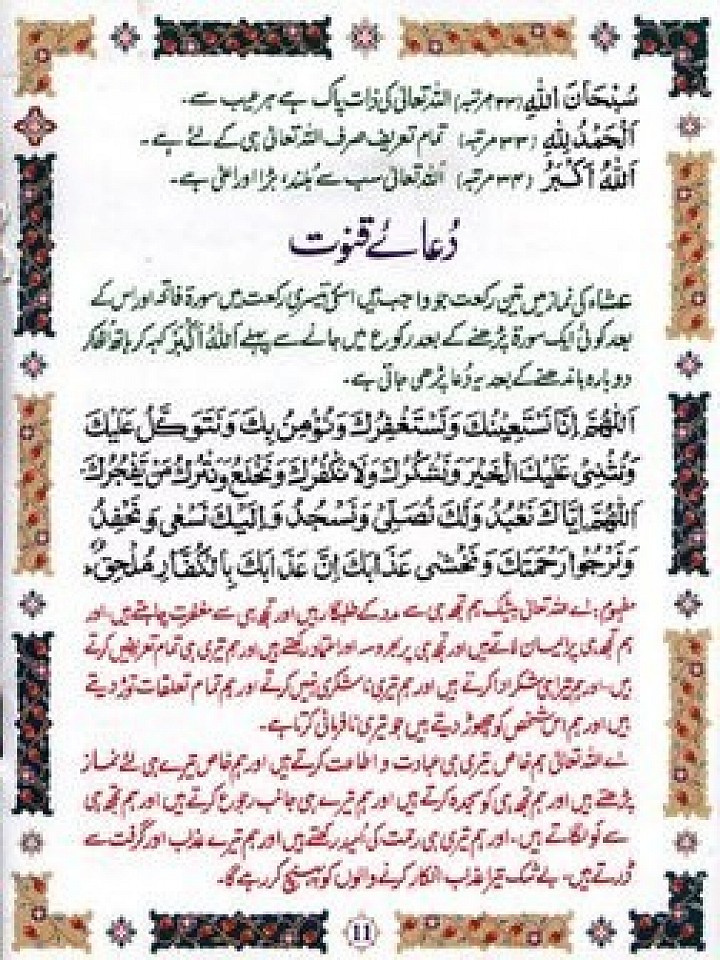 سُبْحَانَ اللهِ (۳۳ مرتبہ) اللہ تعالیٰ کی ذات پاک ہے ہر عیب سے۔
اَلْحَمْدُ لِلهِ (۳۳ مرتبہ) تمام تعریف صرف اللہ تعالیٰ ہی کے لئے ہے۔
اَللهُ اَكْبَرُ (۳۴ مرتبہ) اللہ تعالیٰ سب سے بُلند، بڑا اور اعلیٰ ہے۔
دُعائے قنوت
عشاء کی نماز میں تین رکعت جو واجب ہیں اسکی تیسری رکعت میں سورۃ فاتحہ اور اس کے
بعد کوئی ایک سورۃ پڑھنے کے بعد رکوع میں جانے سے پہلے اَللهُ اَكْبَر کہہ کر ہاتھ اُٹھا کر
دوبارہ باندھنے کے بعد یہ دُعا پڑھی جاتی ہے۔
اَللّٰهُمَّ اِنَّا نَسْتَعِيْنُكَ وَنَسْتَغْفِرُكَ وَنُؤْمِنُ بِكَ وَنَتَوَكَّلُ عَلَيْكَ
وَنُثْنِىْ عَلَيْكَ الْخَيْرَ وَنَشْكُرُكَ وَلَا نَكْفُرُكَ وَنَخْلَعُ وَنَتْرُكُ مَنْ يَّفْجُرُكَ
اَللّٰهُمَّ اِيَّاكَ نَعْبُدُ وَلَكَ نُصَلِّىْ وَنَسْجُدُ وَاِلَيْكَ نَسْعٰى وَنَحْفِدُ
وَنَرْجُوْا رَحْمَتَكَ وَنَخْشٰى عَذَابَكَ اِنَّ عَذَابَكَ بِالْكُفَّارِ مُلْحِقٌ۔
مفہوم: اے اللہ تعالیٰ بیشک ہم تجھ ہی سے مدد کے طلبگار ہیں اور تجھ ہی سے مغفرت چاہتے ہیں، اور
ہم تجھ ہی پر ایمان لاتے ہیں اور تجھ ہی پر بھروسہ اور اعتماد رکھتے ہیں اور ہم تیری ہی تمام تعریفیں کرتے
ہیں۔ اور ہم تیرا ہی شکر ادا کرتے ہیں اور ہم تیری ناشکری نہیں کرتے اور ہم تمام تعلقات توڑ دیتے
ہیں اور ہم اس شخص کو چھوڑ دیتے ہیں جو تیری نافرمانی کرتا ہے۔
اے اللہ تعالیٰ ہم خاص تیری ہی عبادت و اطاعت کرتے ہیں اور ہم خاص تیرے ہی لئے نماز
پڑھتے ہیں اور ہم تجھ ہی کو سجدہ کرتے ہیں اور ہم تیرے ہی جانب رجوع کرتے ہیں اور ہم تجھ ہی
سے لَو لگاتے ہیں۔ اور ہم تیری ہی رحمت کی اُمید رکھتے ہیں اور ہم تیرے عذاب اور گرفت سے
ڈرتے ہیں۔ بے شک تیرا عذاب انکار کرنے والوں کو پہنچ کر رہے گا۔
11